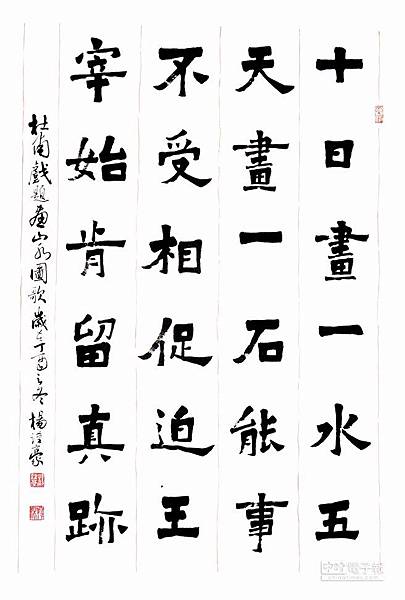 十日畫一水五
天畫一石能事
不受相促迫王
宰始肯留真跡
杜甫戲題畫山水圖歌歲在丁酉之冬楊豪
中時電子報
chinatimes.com